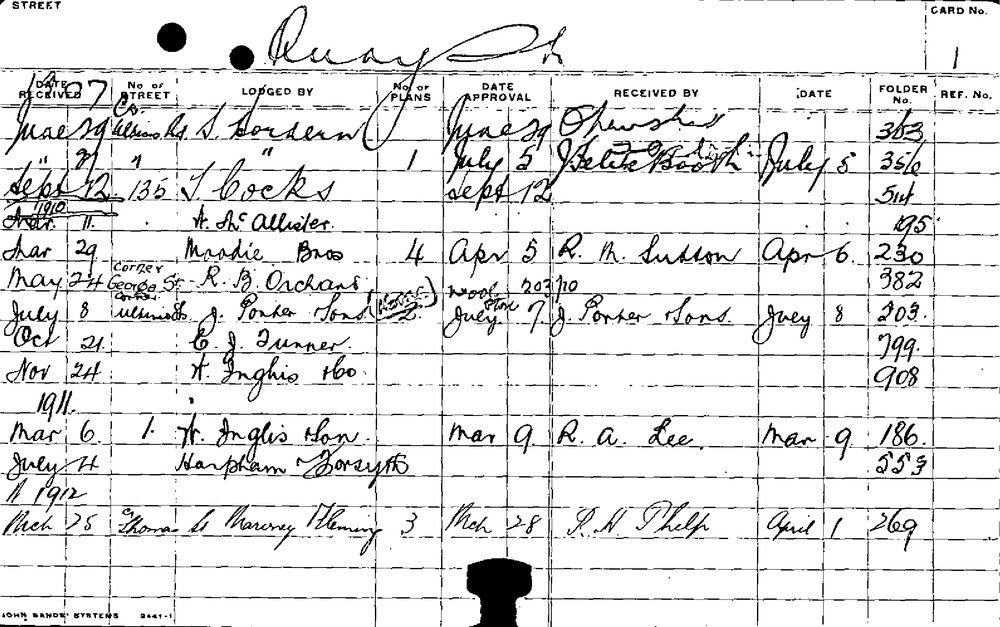 STREET
CARD No.
Quay St
1
DATE RECEIVED No OF STREET LODGED BY No. OF PLANS DATE APPROVAL RECEIVED BY DATE FOLDER No. REF. No.
1907
June 29 S. Hordern June 29 363
" " " 1 July 5 Booth July 5 356
Sept 12 135 Cocks Sept 12 514
1910
Mar. 11. H. McAllister. 195
Mar 29 Moodie Bros 4 Apr 5 R. M. Sutton Apr 6. 230
May 24 corner George St R. B. Orchard 382
July 8 corner J. Porter Sons July 7. J. Porter Sons July 8 203.
Oct 21 C. J. 799.
Nov 24 H. Inglis Co. 908
1911.
Mar 6. 1. H. Inglis Son. Mar 9. R. A. Lee. Mar 9. 186.
July 4 Harpham Forsyth 553
1912
Mch 25 Thomas St Flemming 3 Mch 28 Phelp April 1 269
JOHN SANDS' SYSTEMS 2441-1